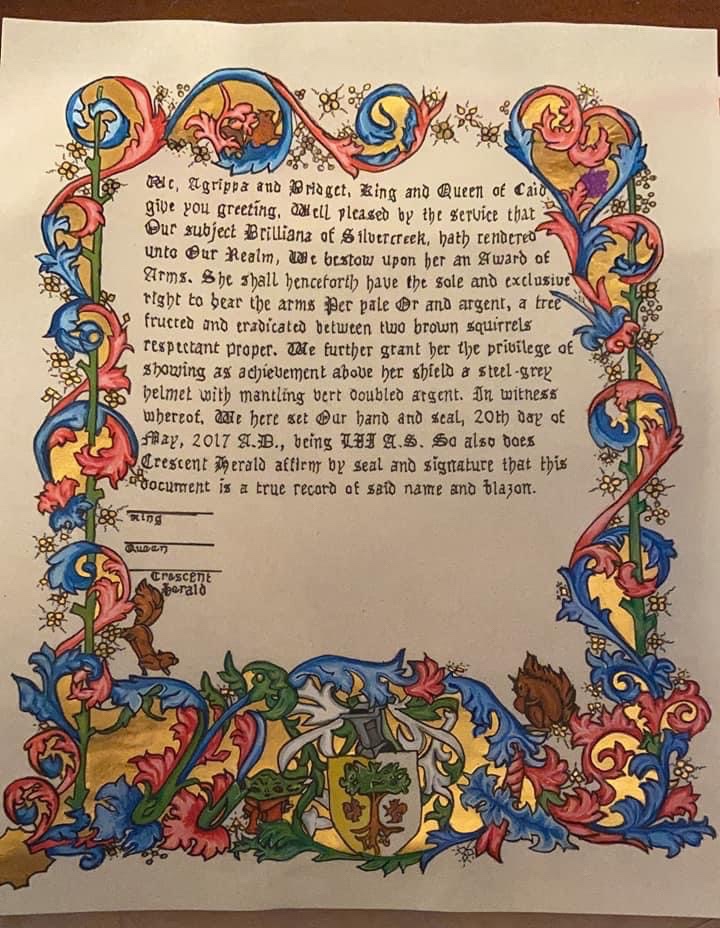 We, Agrippa and Bridget, King and Queen of Caid
give you greeting. Well pleased by the service that
Our subject Brilliana of Silvercreek, hath rendered
unto Our Realm, We bestow upon her an Award of
Arms. She shall henceforth have the sole and exclusive
right to bear the arms Per pale Or and argent, a tree
fructed and eradicated between two brown squirrels
respectant proper. We further grant her the privilege of
showing as achievement above her shield a steel-grey
helmet with mantling vert doubled argent. In witness
whereof, We here set Our hand and seal, 20th day of
May, 2017 A.D., being LII A.S. So also does
Crescent Herald affirm by seal and signature that this
document is a true record of said name and blazon.
King
Queen
Crescent
Herald